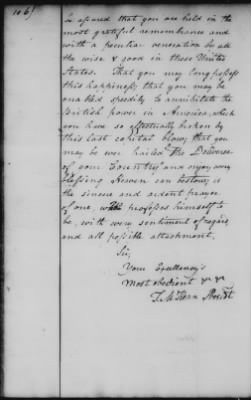 be assured that you are held in the
most grateful remembrance and
with a peculiar veneration by all
the wise & good in these United
States. That you may long possess
this happiness, that you may be
enabled speedily to annihilate the
British power in America, which
you have so effectually broken by
this last capital blow, that you
may be ever hailed The Deliverer
of your Country, and enjoy every
blessing Heaven can bestow, is
the sincere and ardent prayer
of one, who professes himself to
be, with every sentiment of regard
and all possible attachment,
Sir,
Your Excellency's
Most obedient
T. McKean Presidt